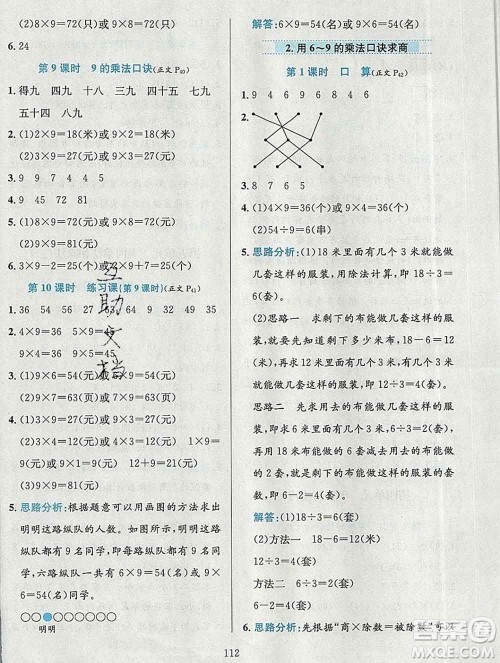 (2)8×9=72(元)或 9×8=72(元)
6. 24
第 9 课时　9 的乘法口诀(正文 P40)
1. 得九　四九　十八　三九　七九　九九
五十四　四十五　八九
2. (1)2×9=18(米)或 9×2=18(米)
(2)3×9=27(元)或 9×3=27(元)
3. 9　8　7　4　4　5
4. 9　45　72　81
5. (1)9×8=72(元)或 8×9=72(元)
(2)9×2=18(元)或 2×9=18(元)
6. 3×9=27(元)或 9×3=27(元)
第 10 课时　练习课(第 9 课时)(正文 P41)
1. 36　54　36　27　63　49　9　35　32
2. 4×9=36　5×9=45
9×4=36　9×5=45
3. (1)9×6=54(元)或 6×9=54(元)
(2)3×9=27(元)或 9×3=27(元)
4. (1)9×6=54(元)或 6×9=54(元)
(2)2×9=18(元)或 9×2=18(元)
(3)9+9=18(元)　9+12=21(元)
9+9+12=30(元)或 1×9=
9(元)　9+9=18(元)　12+9=21(元)
9×2+12=30(元)
5. 思路分析:根据题意可以用画图的方法求出
明明这路纵队的人数。如图所示,明明这路
纵队都有 9 名同学,也就是说每路纵队都有
9 名同学,六路纵队一共有多少名同学,就是
求 6 个 9 是多少,用乘法计算。
明明
互助文档
解答:6×9=54(名)或 9×6=54(名)
2. 用 6～9 的乘法口诀求商
第 1 课时　口　算(正文 P42)
1. 9　4　6　9　6　8　4　6
3. 8　7　6　4　5
4. (1)4×9=36(个)或 9×4=36(个)
(2)54÷9=6(串)
5. 思路分析:(1)求 18 米里面有几个 3 米就能做
几套这样的服装,用除法计算。
(2)思路一　求剩下的布能做几套这样的服
装,要先知道剩下几米布,再求剩下的米数
里面有几个 3 米,就能做几套这样的服装。
思路二　先求用去的布能做几套这样的服
装,再求 18 米布一共能做几套这样的服装,
一共能做的服装的套数减用去的布能做的
服装的套数,就是剩下的布能做的服装的套
数。
解答:(1)18÷3=6(套)
(2)方法一　18-6=12(米)
12÷3=4(套)
方法二　6÷3=2(套)
18÷3=6(套)
6-2=4(套)
6. 思路分析:先根据“商×除数=被除数”可以
112